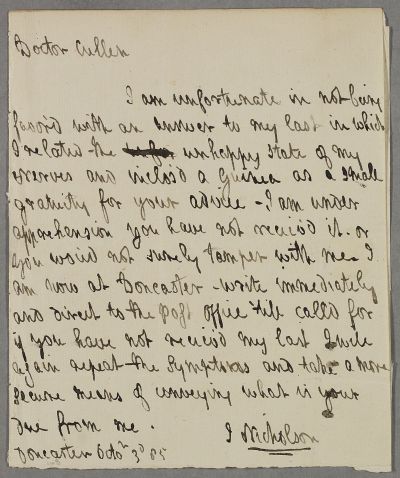 Doctor Cullen
I am unfortunate in not being
favor'd with an answer to my last in which
I related the unhappy state of my
nerves and inclosd a Guinea as a small
gratuity for your advice - I am under
apprehension you have not reciev'd it. or
you woud not surely tamper with me. I
am now at Doncaster - write immediately
and direct to the Post Office till called for
if you have not reciev'd my last I will
again repeat the Symptoms and take a more
secure means of conveying what is your
due from me.
J Nicholson
Doncaster Octo.r 3d 85